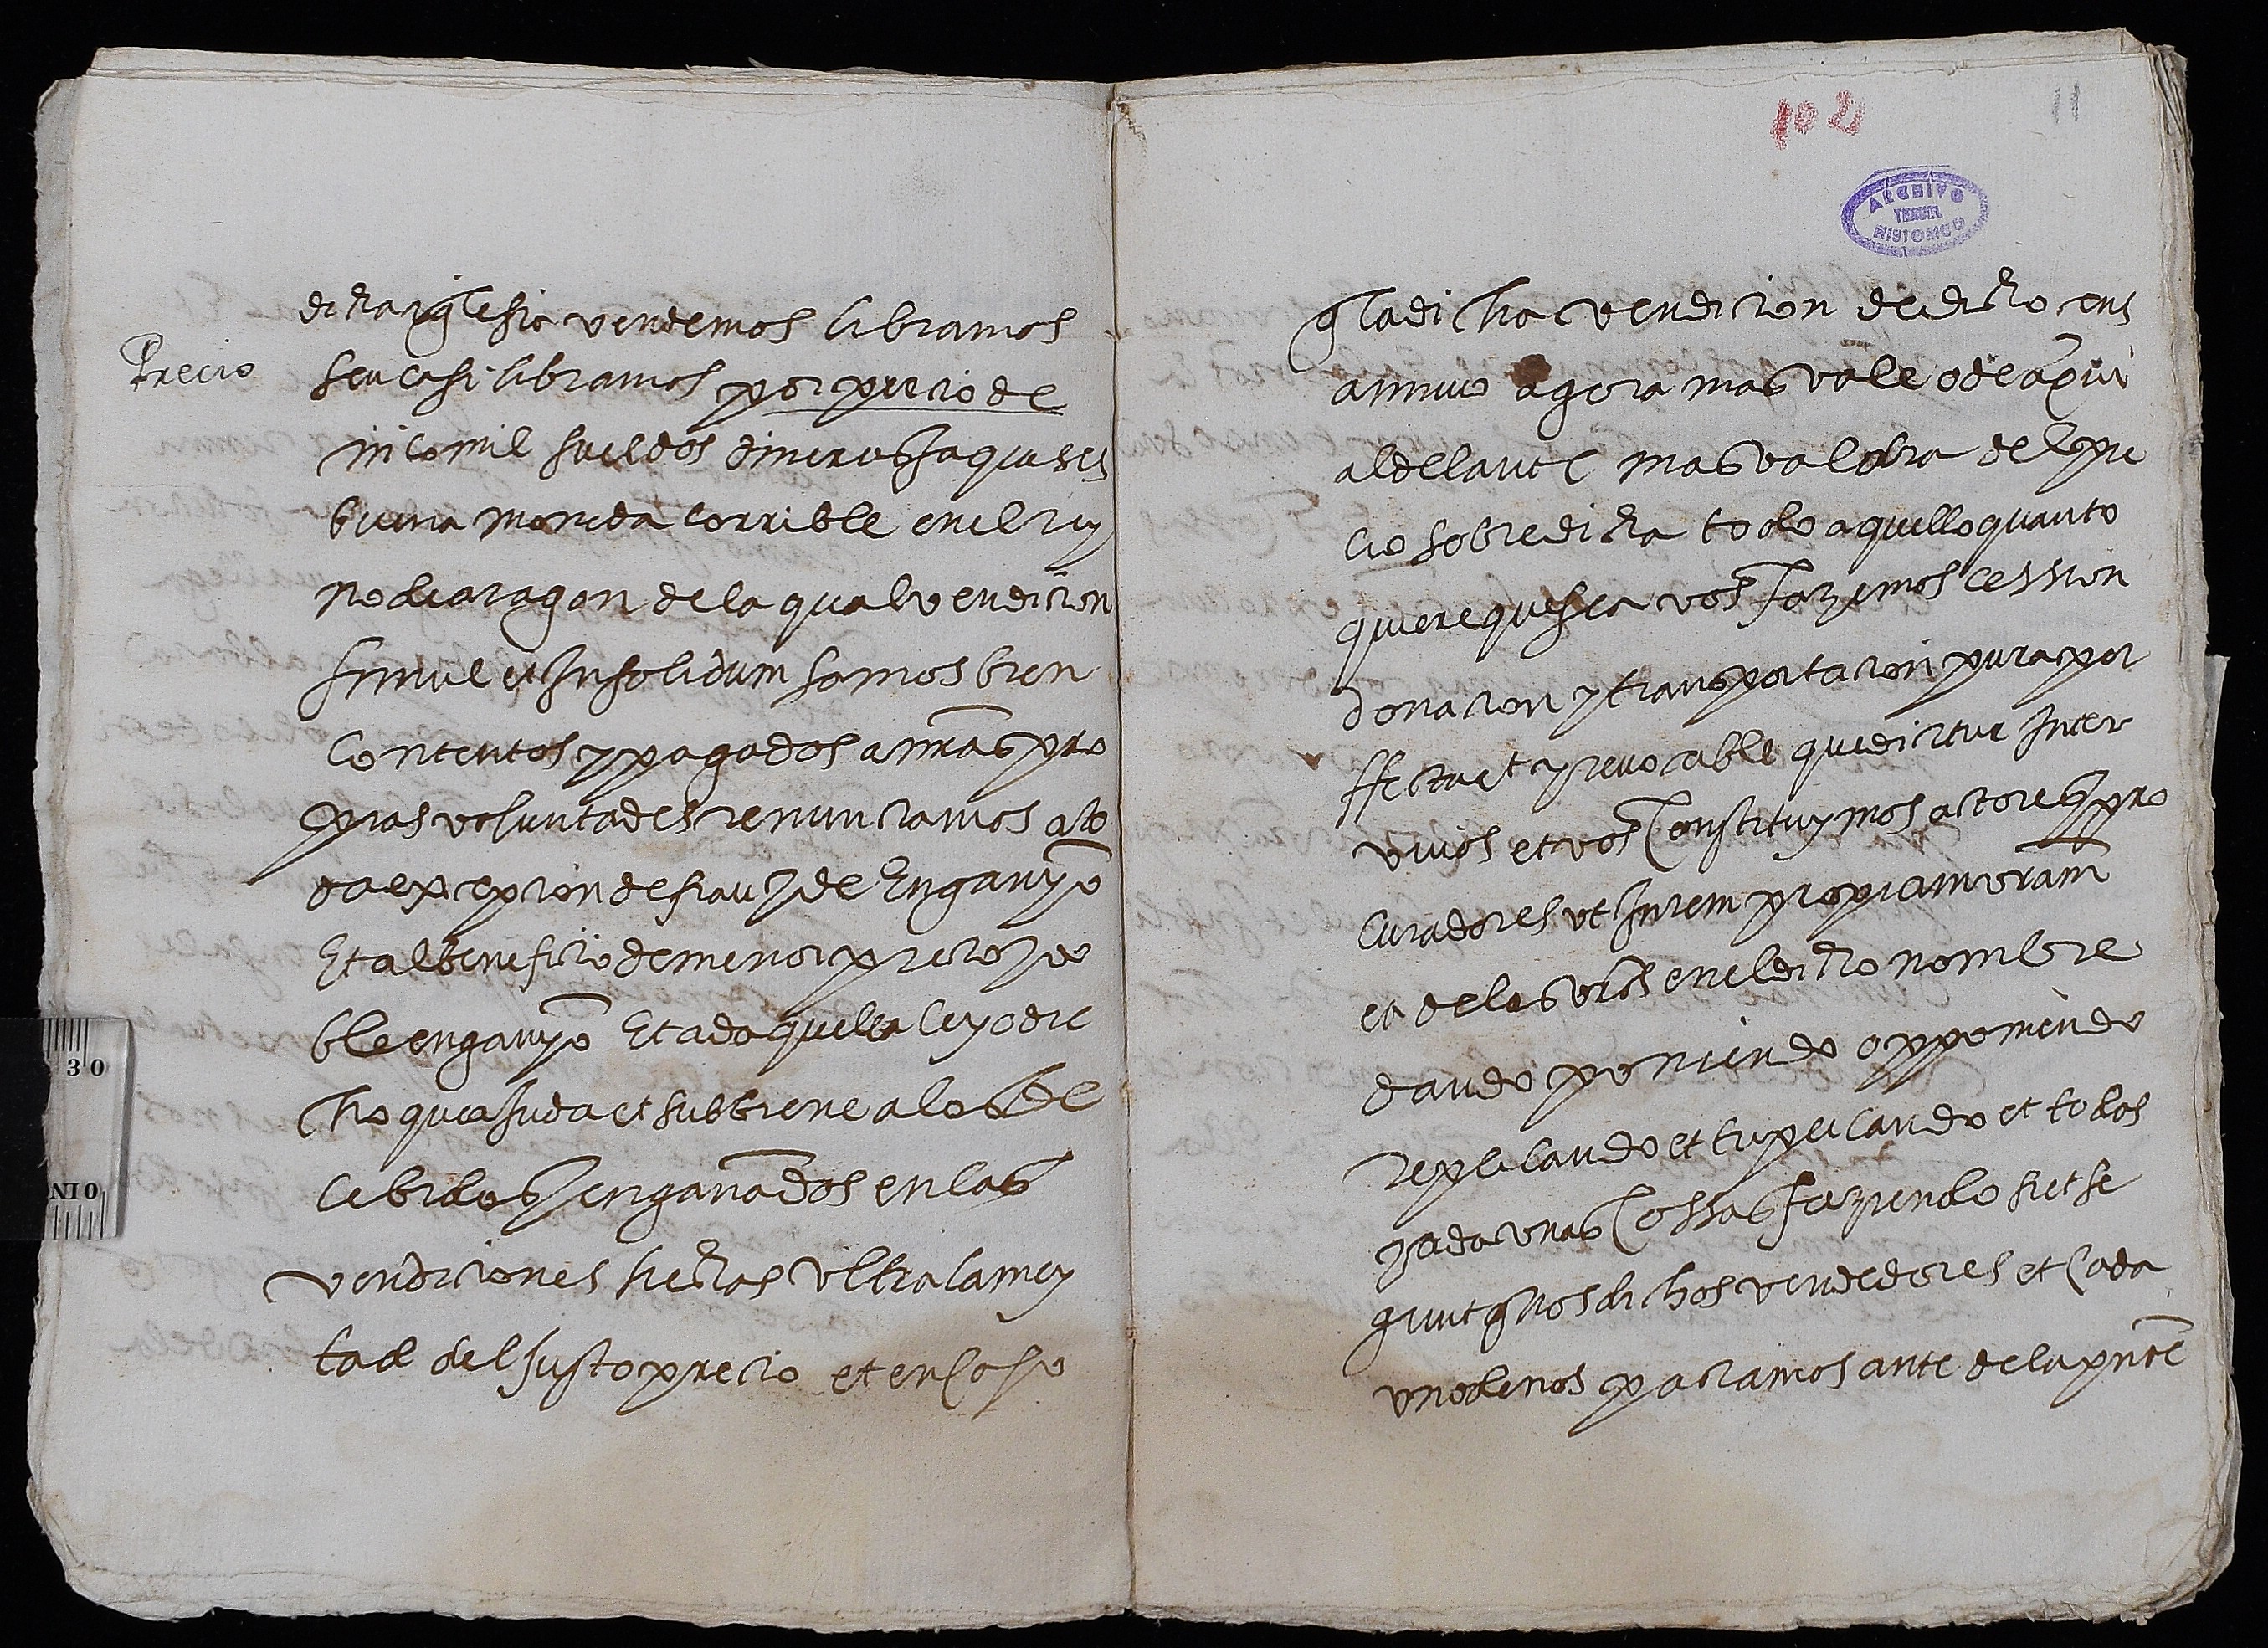 Precio
dicha iglesia vendemos libramos
seu casi libramos por precio de
mil sueldos dineros Jaqueses
buena moneda corrible en el rey
no de aragon de la qual vendicion
simul et Insolidum somos bien
contentos y pagados a nras pro
prias voluntades renunciamos a to
da excepcion de frau y de Enganyo
Et al beneficio de menor precio y do
ble enganyo Et ad aquella ley o dre
cho que ajuda et subbiene a los de
cebidos y enganados en las
vendiciones fechas ultra la mey
tad del justo precio et en caso
102
11
ARCHIVO
TERUEL
HISTORICO
q la dicha vendicion de dicho cens
annuo agora mas vale o de aqui
aldelante mas valdra del pre
cio sobredicta todo aquello quanto
quiere que sea vos fazemos cession
donacion y transportacion pura per
ffecta et yrevocable que dicitur Inter
vivos et vos constituymos actores pro
curadores ut In rem propriam vram
et de los vros en el dicho nombre
dando poniendo opponiendo
replicando et tripicando et todos
y cada unas cossas faziendo fiet se
quut q nos dichos vendedores et cada
uno de nos paciamos ante de la pnte